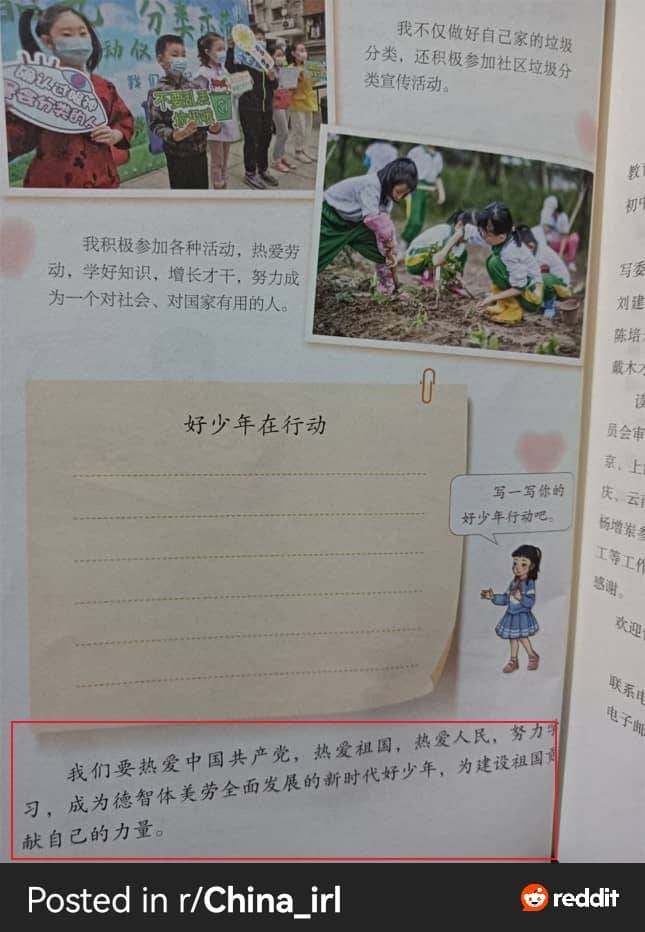 分类示范
动仪
我们
确认过眼神
是会分类的人
不要乱丢
我不仅做好自己家的垃圾
分类，还积极参加社区垃圾分
类宣传活动。
我积极参加各种活动，热爱劳
动，学好知识，增长才干，努力成
为一个对社会、对国家有用的人。
好少年在行动
写一写你的
好少年行动吧。
我们要热爱中国共产党，热爱祖国，热爱人民，努力学
习，成为德智体美劳全面发展的新时代好少年，为建设祖国贡
献自己的力量。
教育
初中
写委
刘建
陈培
戴木
读
员会审
京、上
庆、云南
杨增岽参
工等工作
感谢。
欢迎
联系电
电子邮
Posted in r/China_irl
reddit